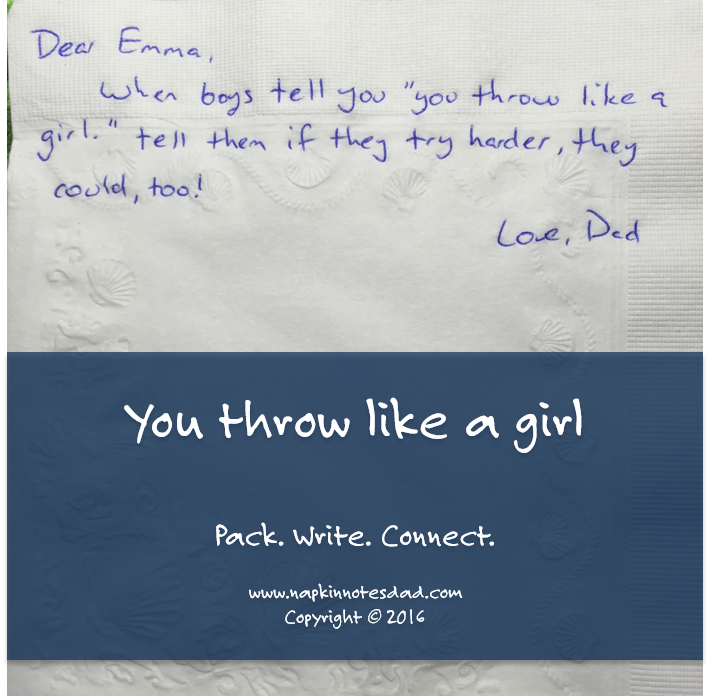 Dear Emma,
When boys tell you "you throw like a
girl." tell them if they try harder, they
could, too!
Love, Dad
You throw like a girl
Pack. Write. Connect.
www.napkinnotesdad.com
Copyright © 2016